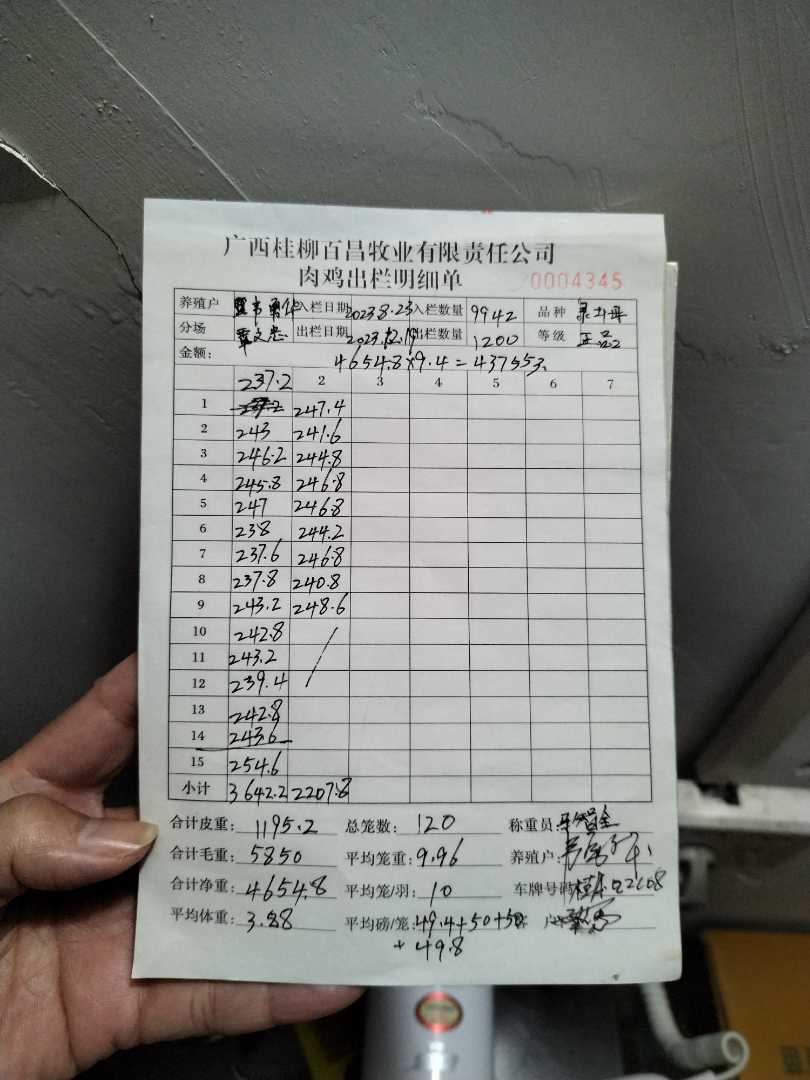 广西桂柳百昌牧业有限责任公司
肉鸡出栏明细单 0004345
养殖户 入栏日期 2023.8.23 入栏数量 9942 品种
分场 覃文忠 出栏日期 2023.12.19 出栏数量 1200 等级 正品
金额: 4654.8×9.4=437553.
237.2 2 3 4 5 6 7
1 247.4
2 243 241.6
3 246.2 244.8
4 245.8 246.8
5 247 246.8
6 238 244.2
7 237.6 246.8
8 237.8 240.8
9 243.2 248.6
10 242.8
11 243.2
12 239.4
13 242.8
14 243.6
15 254.6
小计 3642.2 2207.8
合计皮重: 1195.2 总笼数: 120 称重员:
合计毛重: 5850 平均笼重: 9.96 养殖户:
合计净重: 4654.8 平均笼/羽: 10 车牌号码
平均体重: 3.88 平均磅/笼: 49.4+50+50
+49.8